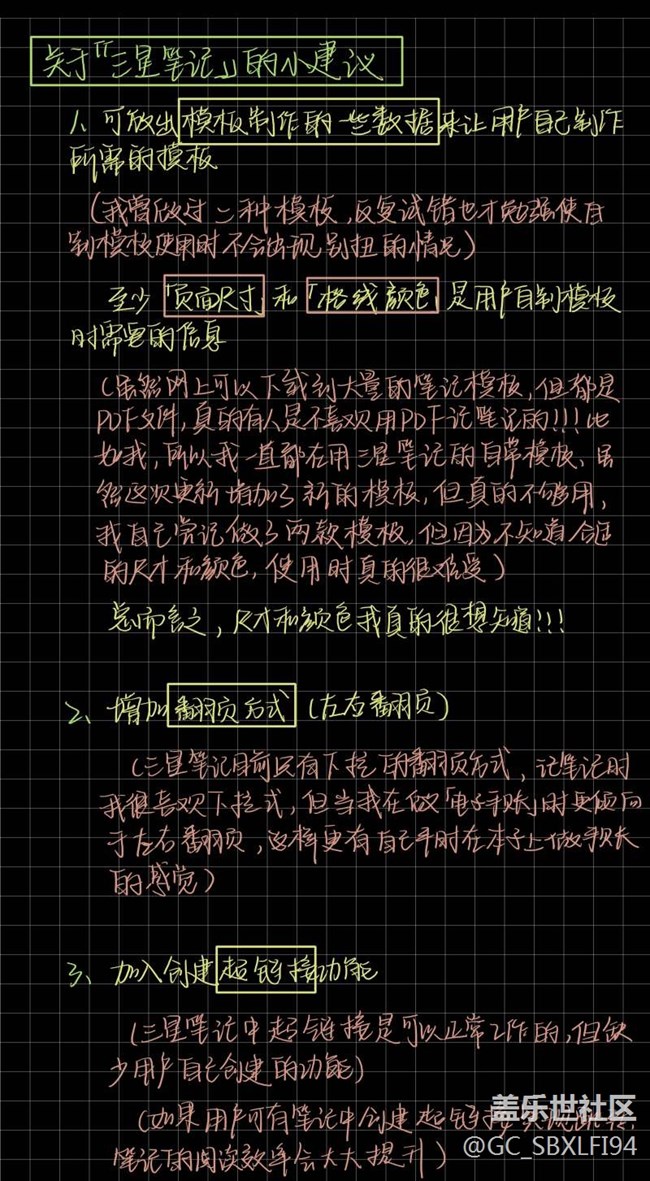 关于「三星笔记」的小建议
1、可放出模板制作的一些数据来让用户自己制作
所需的模板
(我曾做过二种模板,反复试错也才勉强使自
制模板使用时不会出现别扭的情况)
至少「页面尺寸」和「格线颜色」是用户自制模板
时需要的信息
(虽然网上可以下载到大量的笔记模板,但都是
PDF文件,真的有人是不喜欢用PDF记笔记的!!!比
如我,所以我一直都在用三星笔记的自带模板、虽
然这次更新增加了新的模板,但真的不够用,
我自己尝试做了两款模板,但因为不知道合适
的尺寸和颜色,使用时真的很难受)
总而言之,尺寸和颜色我真的很想知道!!!
2、增加翻页方式(左右翻页)
(三星笔记目前只有下拉的翻页方式,记笔记时
我很喜欢下拉式,但当我在做「电子手账」时更倾向
于左右翻页,这样更有自己平时在本子上做手账
的感觉)
3、加入创建超链接功能
(三星笔记中超链接是可以正常工作的,但缺
少用户自己创建的功能)
(如果用户可在笔记中创建超链接
笔记的阅读效率会大大提升)
盖乐世社区
@GC_SBXLFI94